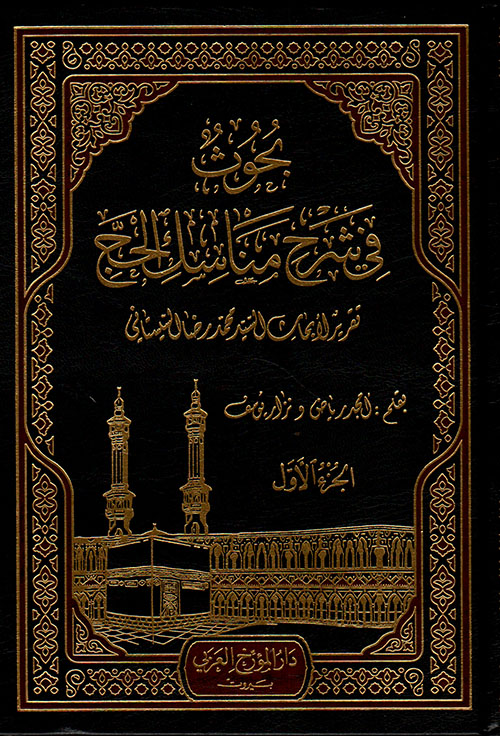 بُحُوثٌ
فِي شَرْحِ مَنَاسِكِ الحَجِّ
تقرير لأبحاث السيد محمد رضا السيستاني
بقلم : امجد رياض و نزار يوسف
الجُزءُ الأَوَّل
دَارُ المُؤَرِّخ العَرَبي
بيروت